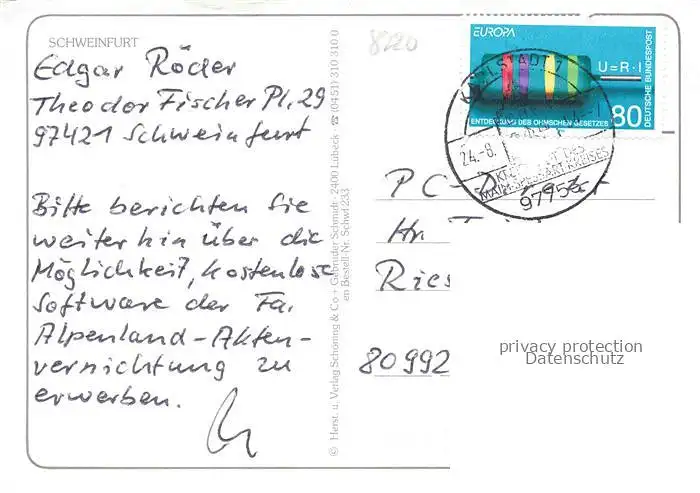 SCHWEINFURT
Edgar Röder
Theodor Fischer Pl. 29
97421 Schweinfurt
Bitte berichten Sie
weiterhin über die
Möglichkeit, kostenlose
Software der Fa.
Alpenland-Akten-
vernichtung zu
erwerben.
© Herst. u. Verlag Schöning & Co + Gebrüder Schmidt · 2400 Lübeck · ☎ (0451) 310 310 0
en Bestell-Nr. Schwf 233
8720
EUROPA
U=R·I
80
DEUTSCHE BUNDESPOST
ENTDECKUNG DES OHMSCHEN GESETZES
24.-8.
MAIN-SPESSART-KREISES
97753
PC-Direkt
Hr.
Ries
80992
privacy protection
Datenschutz